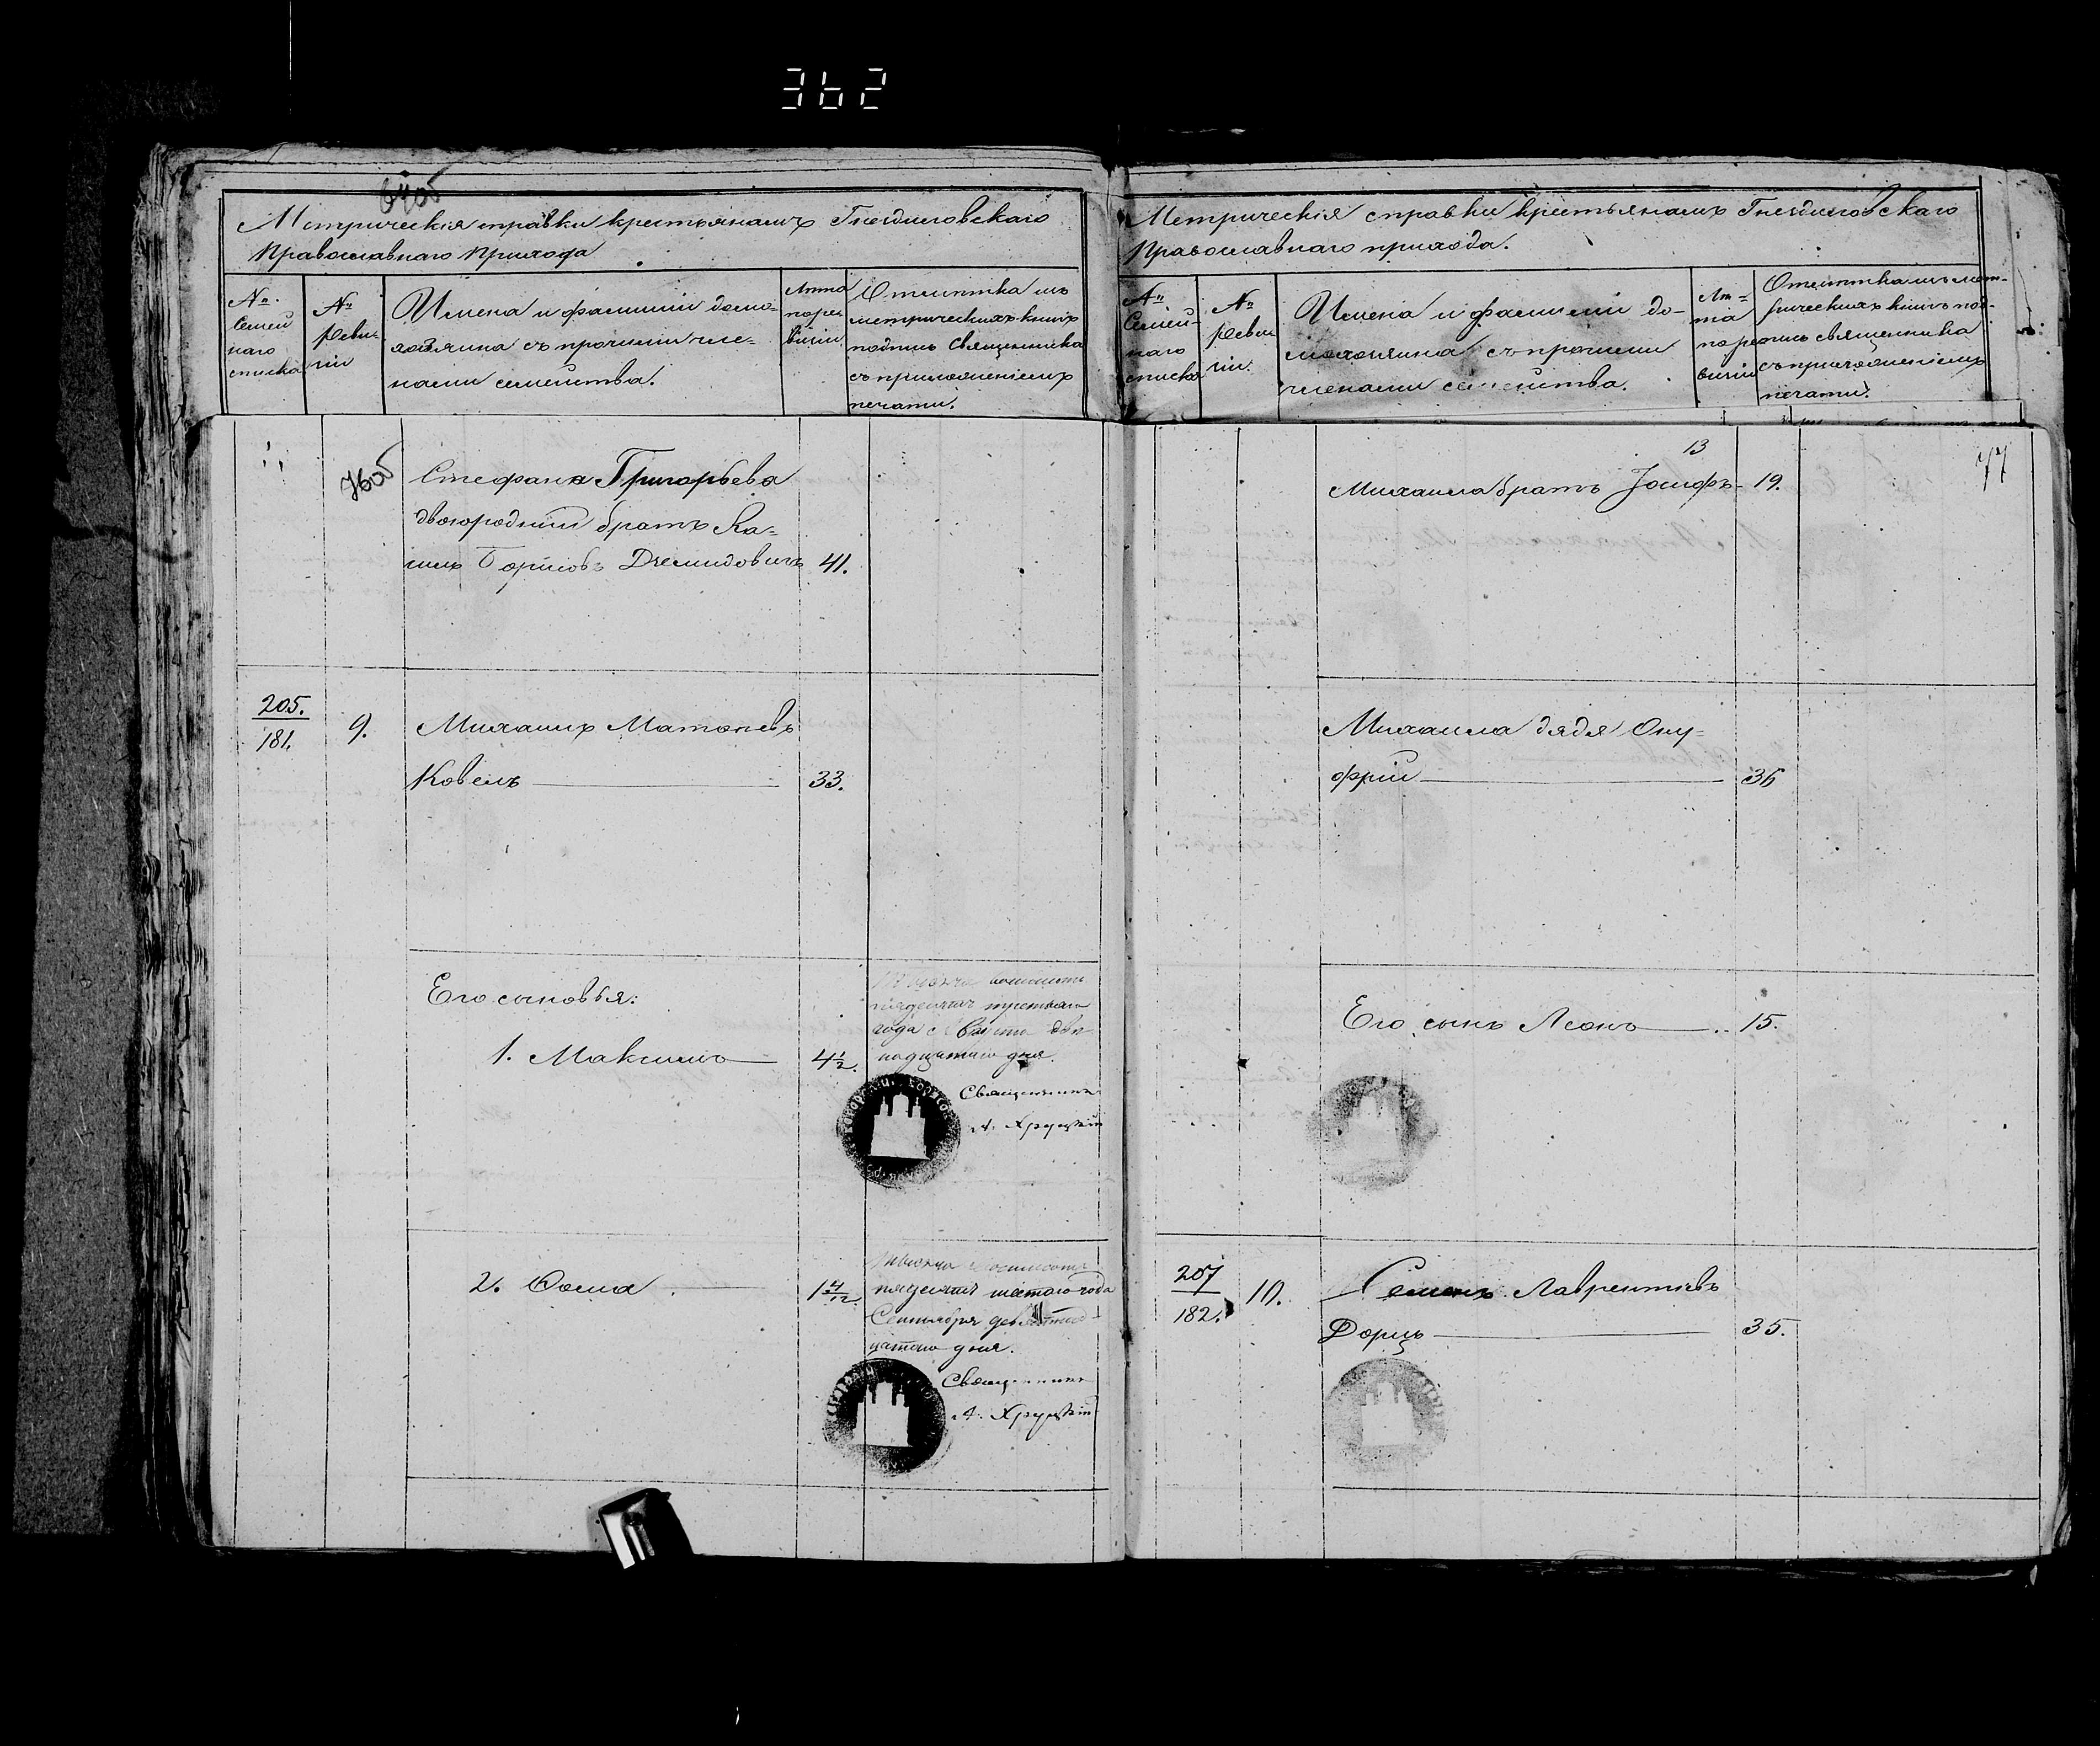 362
64об
Метрическія справки крестьянамъ Гнездиловскаго
Православнаго Прихода
№
Семей
наго
списка
№
Реви-
зіи
Имена и фамиліи домо-
хозяина съ прочими чле-
нами семейства.
Лѣта
по ре
визіи
Отмѣтка изъ
метрическихъ книгъ
подпись Священника
съ приложеніемъ
печати.
76об
Стефана Григорьева
двоюродный братъ
Борисовъ Демидовичъ 41.
205.
181.
9.
Михаилъ Матѳеевъ
Ковель 33.
Его сыновья:
1. Максимъ 4½.
восемьсотъ
пятдесятъ третьяго
года Августа двѣ
надцатаго дня.
Священникъ
А. Хруцкій
2. Ѳома 1 4/12
Тысяча восемьсотъ
пятдесятъ шестого года
Сентября девятнад-
цатого дня.
Священникъ
А. Хруцкій
Метрическія справки крестьянамъ Гнездиловскаго
Православнаго прихода.
№
Семей-
наго
списка
№
Реви
зіи.
Имена и фамиліи до-
мохозяина съ прочими
членами семейства.
Лѣ-
та
по ре
визіи
Отмѣтка изъ мет-
рическихъ книгъ под-
пись священника
съ приложеніемъ
печати.
13
77
Михаила братъ Іосифъ 19.
Михаила дядя Ону-
фрій 36
Его сынъ Леонъ 15.
207
182.
10.
Семенъ Лаврентіевъ
Дорцъ 35.